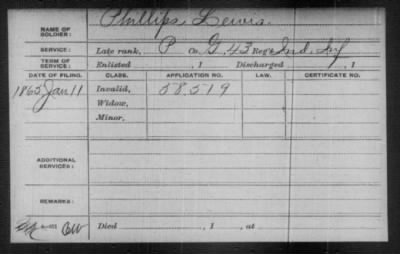 NAME OF SOLDIER: Phillips, Lewis.
SERVICE: Late rank, P Co. G, 43 Reg't Ind. Inf
TERM OF SERVICE: Enlisted , 1 Discharged , 1
DATE OF FILING. CLASS. APPLICATION NO. LAW. CERTIFICATE NO.
1865 Jan 11 Invalid, 58.519
Widow,
Minor,
ADDITIONAL SERVICES:
REMARKS:
Died , 1 , at